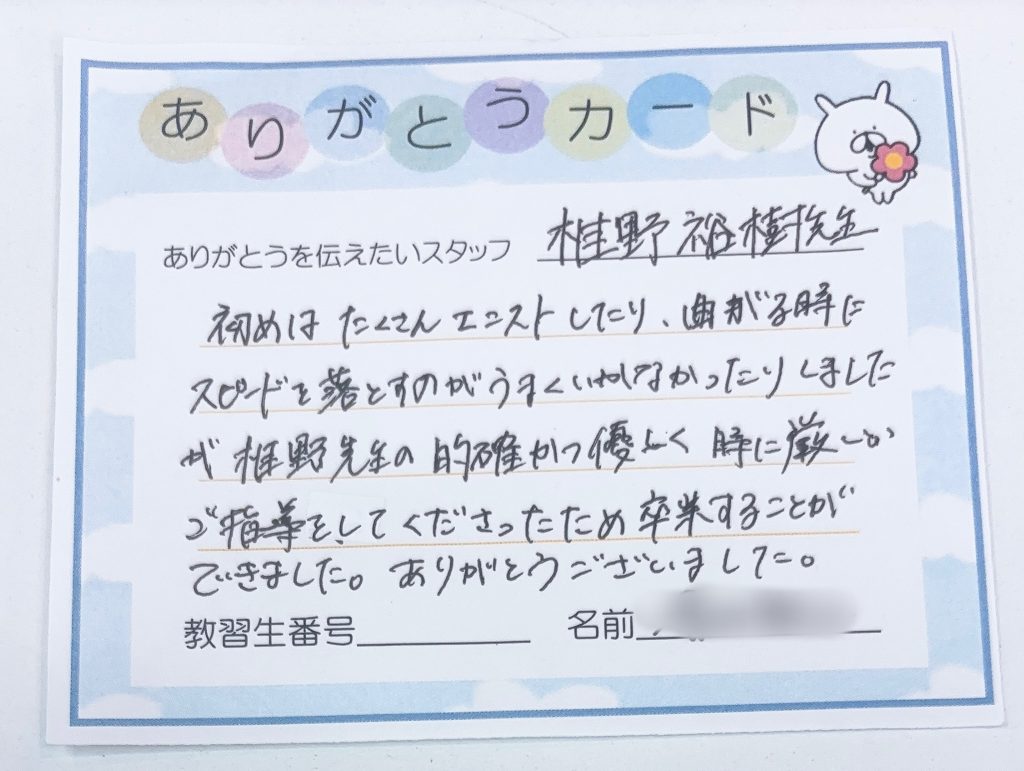 ありがとうカード
ありがとうを伝えたいスタッフ 椎野裕樹先生
初めは たくさんエンストしたり、曲がる時に
スピードを落とすのがうまくいかなかったりしました
が 椎野先生の 的確かつ優しく 時に厳しい
ご指導をしてくださったため 卒業することが
できました。ありがとうございました。
教習生番号 名前